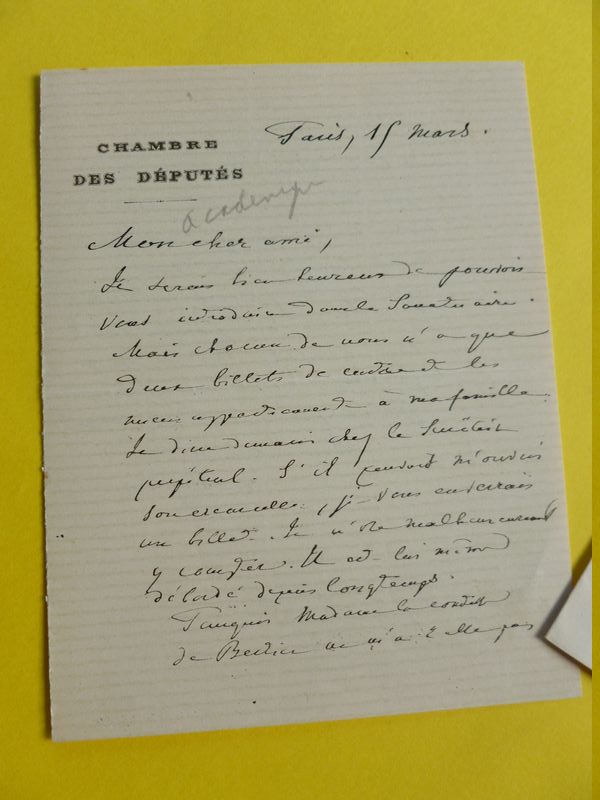 CHAMBRE
DES DÉPUTÉS
Paris, 15 mars.
Mon cher ami,
Je serais bien heureux de pouvoir
vous introduire dans le Sanctuaire.
Mais chacun de nous n'a que
deux billets de centre et les
miens appartiennent à ma famille.
Je dine demain chez le Secrétaire
perpétuel. S'il pouvait m'ouvrir
son escarcelle, je vous enverrais
un billet. Je n'ose malheureusement
y compter. Il est lui même
débordé depuis longtemps.
Pourquoi Madame la
de ne m'a t'elle pas